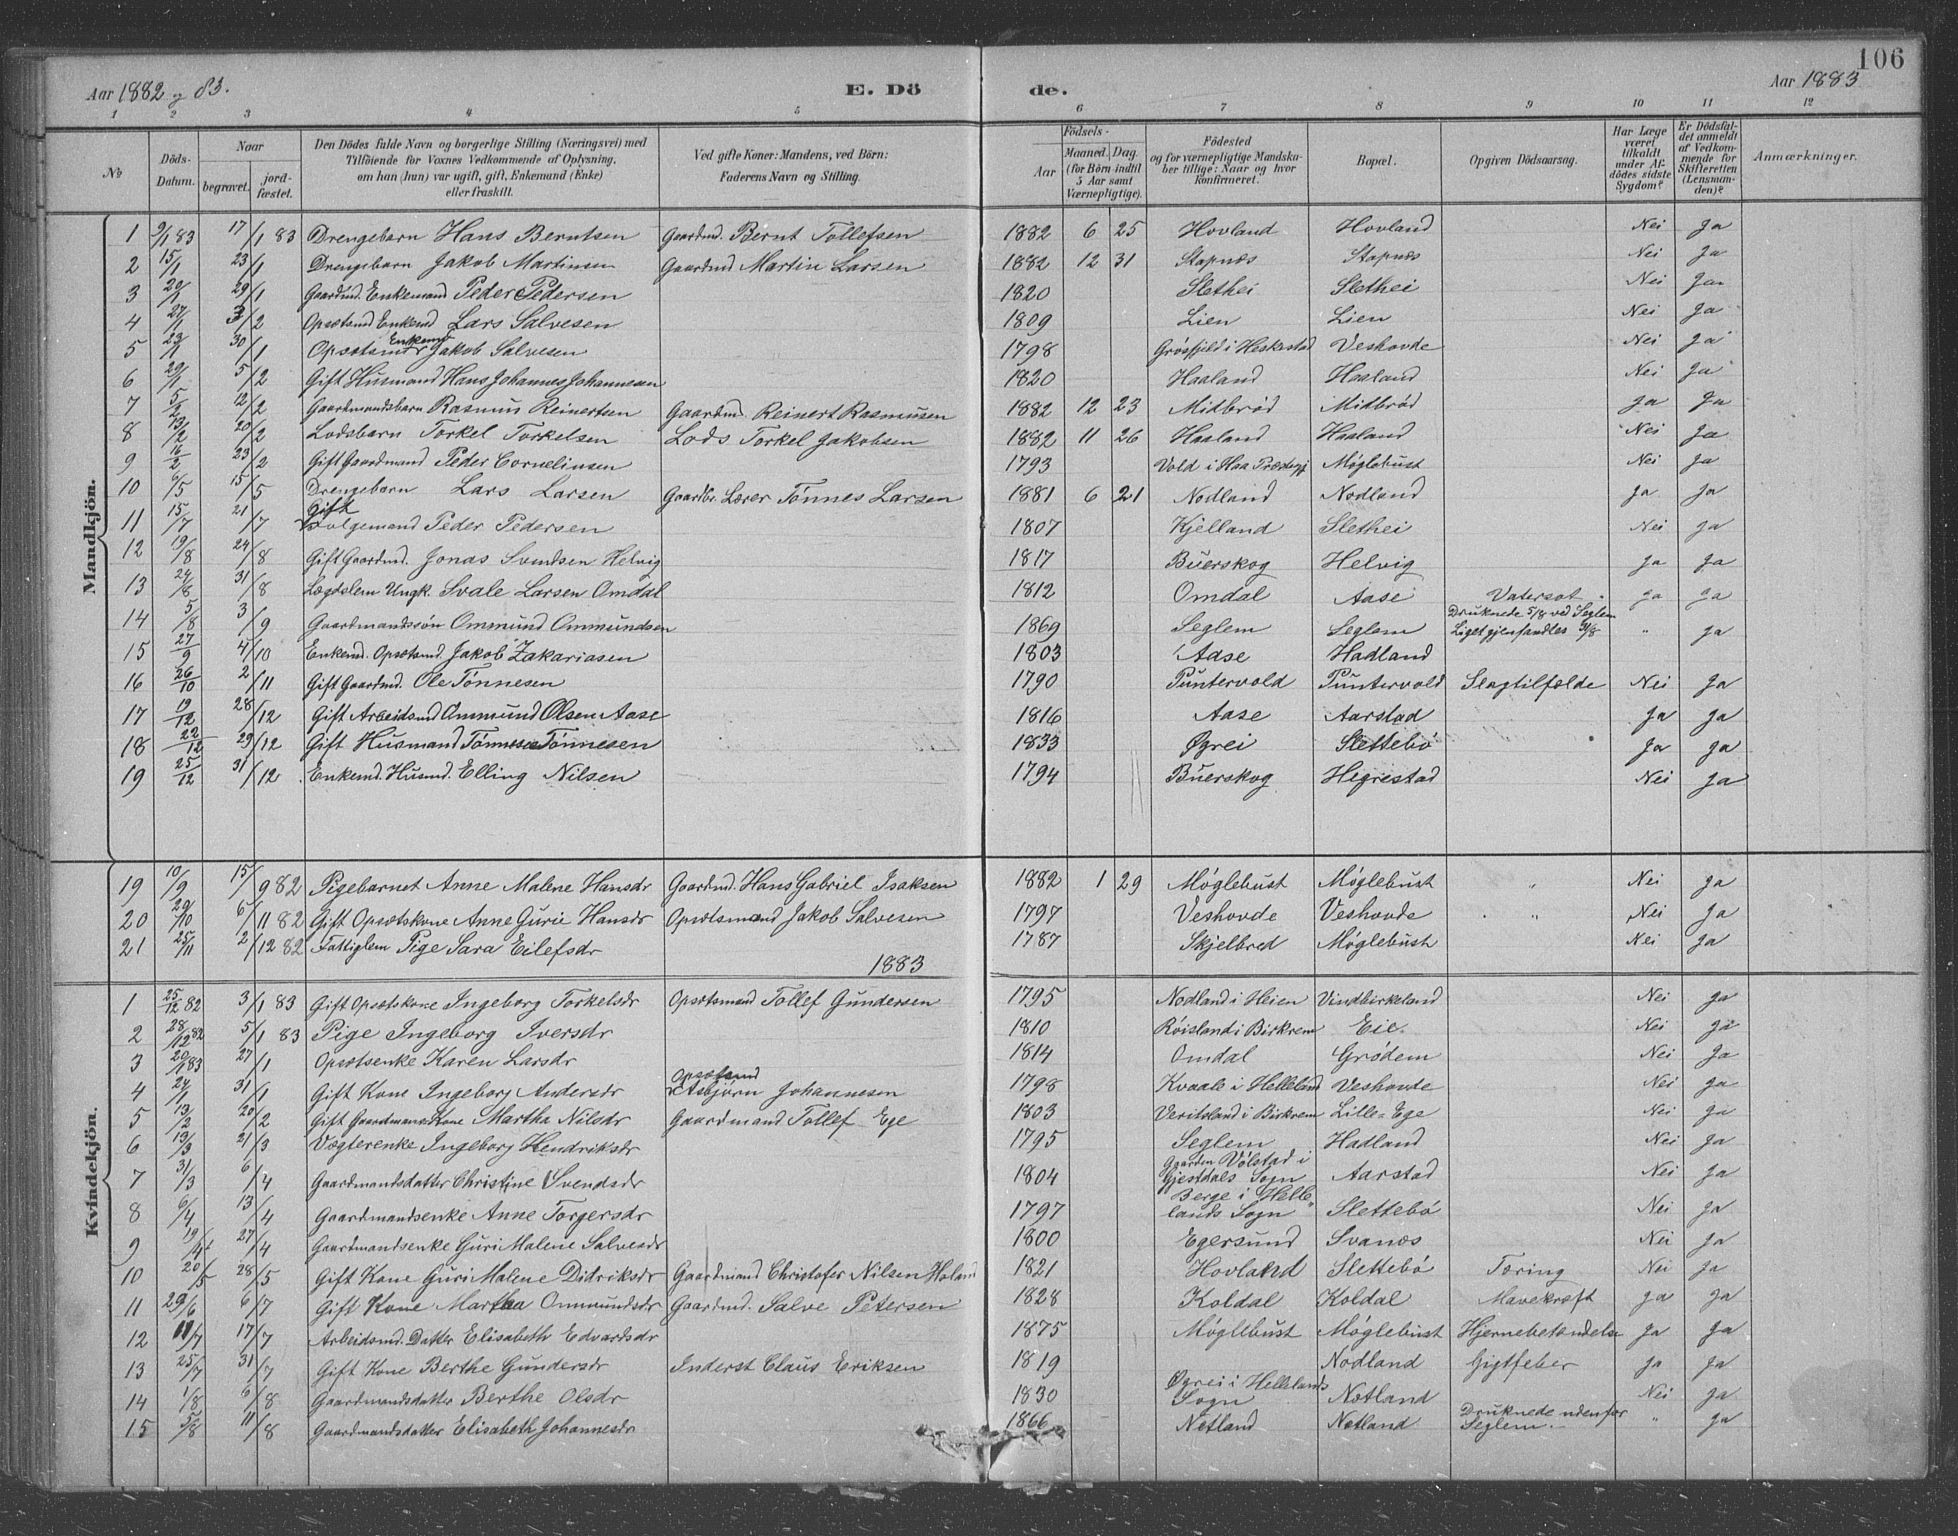 106
Aar 1882 og 83. E. Dö de. Aar 1883
1 2 3 4 5 6 7 8 9 10 11 12
No Döds-Datum. Naar begravet. jordfæstet. Den Dödes fulde Navn og borgerlige Stilling (Næringsvei) med Tilföiende for Voxnes Vedkommende af Oplysning, om han (hun) var ugift, gift, Enkemand (Enke) eller fraskilt. Ved gifte Koner: Mandens, ved Börn: Faderens Navn og Stilling. Födsels- Aar Maaned. Dag. (for Börn indtil 5 Aar samt Værnepligtige). Födested og for værnepligtige Mandskaber tillige: Naar og hvor konfirmeret. Bopæl. Opgiven Dödsaarsag. Har Læge været tilkaldt under Afdödes sidste Sygdom? Er Dödsfaldet anmeldt af Vedkommende for Skifteretten (Lensmanden)? Anmærkninger.
Mandkjön.
1 9/1 83 17/1 83 Drengebarn Hans Berntsen Gaardmd. Bernt Tollefsen 1882 6 25 Hovland Hovland Nei Ja
2 15/1 23/1 Drengebarn Jakob Martinsen Gaardmd Martin Larsen 1882 12 31 Stapnæs Stapnæs Nei Ja
3 20/1 29/1 Gaardmd. Enkemand Peder Pedersen 1820 Slethei Slethei Nei Ja
4 27/1 3/2 Opsætsmd Enkemd Lars Salvesen 1809 Lien Lien Nei Ja
5 23/1 30/1 Opsætsmd Enkemd Jakob Salvesen 1798 Grøsfjeld i Heskestad Veshovde Nei Ja
6 29/1 5/2 Gift Husmand Hans Johannes Johannesen 1820 Haaland Haaland Nei Ja
7 5/2 12/2 Gaardmandsbarn Rasmus Reinertsen Gaardmd. Reinert Rasmusen 1882 12 23 Midbrød Midbrød Ja Ja
8 13/2 20/2 Lodsbarn Torkel Torkelsen Lods Torkel Jakobsen 1882 11 26 Haaland Haaland Nei Ja
9 16/2 23/2 Gift Gaardmand Peder Corneliusen 1793 Vold i Haa Præstegj Møglebust Nei Ja
10 6/5 15/5 Drengebarn Lars Larsen Gaardbr. Lærer Tønnes Larsen 1881 6 21 Nodland Nodland Ja Ja
11 15/7 21/7 Gift Folgemand Peder Pedersen 1807 Kjelland Slethei Nei Ja
12 19/8 24/8 Gift Gaardmd. Jonas Svendsen Helvig 1817 Buerskog Helvig Ja Ja
13 24/8 31/8 Lægdslem Ungk. Svale Larsen Omdal 1812 Omdal Aase Vatersot Ja Ja
14 5/8 3/9 Gaardmandssøn Ommund Ommundsen 1869 Seglem Seglem Druknede 5/8 ved Seglem Liget gjenfandtes 31/8 " Ja
15 27/9 4/10 Enkemd. Opsætsmd. Jakob Zakariasen 1803 Aase Hadland
16 26/10 2/11 Gift Gaardmd. Ole Tønnesen 1790 Puntervold Puntervold Slagtilfælde Nei Ja
17 19/12 28/12 Gift Arbeidsmd Ommund Olsen Aase 1816 Aase Aarstad Ja Ja
18 22/12 29/12 Gift Husmand Tønnes Tønnesen 1833 Øgrei Slettebø Ja Ja
19 25/12 31/12 Enkemd. Husmd. Elling Nilsen 1794 Buerskog Hegrestad Nei Ja
19 10/9 15/9 82 Pigebarnet Anne Malene Hansdr Gaardmd. Hans Gabriel Isaksen 1882 1 29 Møglebust Møglebust " Nei Ja
20 29/10 6/11 82 Gift Opsætskone Anne Gurie Hansdr Opsætsmand Jakob Salvesen 1797 Veshovde Veshovde " Nei Ja
21 25/11 2/12 82 Fattiglem Pige Sara Eilefsdr 1787 Skjelbred Møglebust Nei Ja
1883
Kvindekjön.
1 25/12 82 3/1 83 Gift Opsætskone Ingeborg Torkelsdr Opsætsmand Tollef Gundersen 1795 Nodland i Heien Vindbirkeland Nei Ja
2 28/12 82 5/1 83 Pige Ingeborg Iversdr 1810 Røisland i Birkrem Eie. Nei Ja
3 20/1 83 27/1 Opsætsenke Karen Larsdr 1814 Omdal Grødem Nei Ja
4 24/1 31/1 Gift Kone Ingeborg Andersdr Opsætsmd Asbjørn Johannesen 1798 Kvaale i Helleland Veshovde Nei Ja
5 13/2 20/2 Gift Gaardmans Kone Martha Nilsdr Gaardmand Tollef Ege 1803 Veritsland i Birkrem Lille-Ege Nei Ja
6 13/3 21/3 Vægterenke Ingeborg Hendriksdr 1795 Seglem Hadland Nei Ja
7 31/3 6/4 Gaardmandsdatter Christine Svendsdr 1804 Gaarden Vølstad i Gjestdals Sogn Aarstad Nei Ja
8 6/4 13/4 Gaardmandsenke Anne Torgersdr 1797 Berge i Hellelands Sogn Slettebø Nei Ja
9 19/4 27/4 Gaardmandsenke Guri Malene Salvesdr 1800 Egersund Svanæs Nei Ja
10 20/5 28/5 Gift Kone Guri Malene Didriksdr Gaardmand Christofer Nilsen Holand 1821 Hovland Slettebø Tæring Nei Ja
11 29/6 6/7 Gift Kone Martha Ommundsdr Gaardmd. Salve Petersen 1828 Koldal Koldal Mavekræft Ja Ja
12 11/7 17/7 Arbeidsmd. Datter Elisabeth Edvardsdr 1875 Møglebust Møglebust Hjernebetændelse Ja Ja
13 25/7 31/7 Gift Kone Berthe Gundersdr Inderst Claus Eriksen 1819 Nodland Gigtfeber Ja Ja
14 1/8 6/8 Gaardmandsdatter Berthe Olsdr 1830 Øgrei i Hellelands Sogn Nætland Nei Ja
15 5/8 11/8 Gaardmandsdatter Elisabeth Johannesdr 1866 Nætland Nætland Druknede udenfor Seglem. " Ja